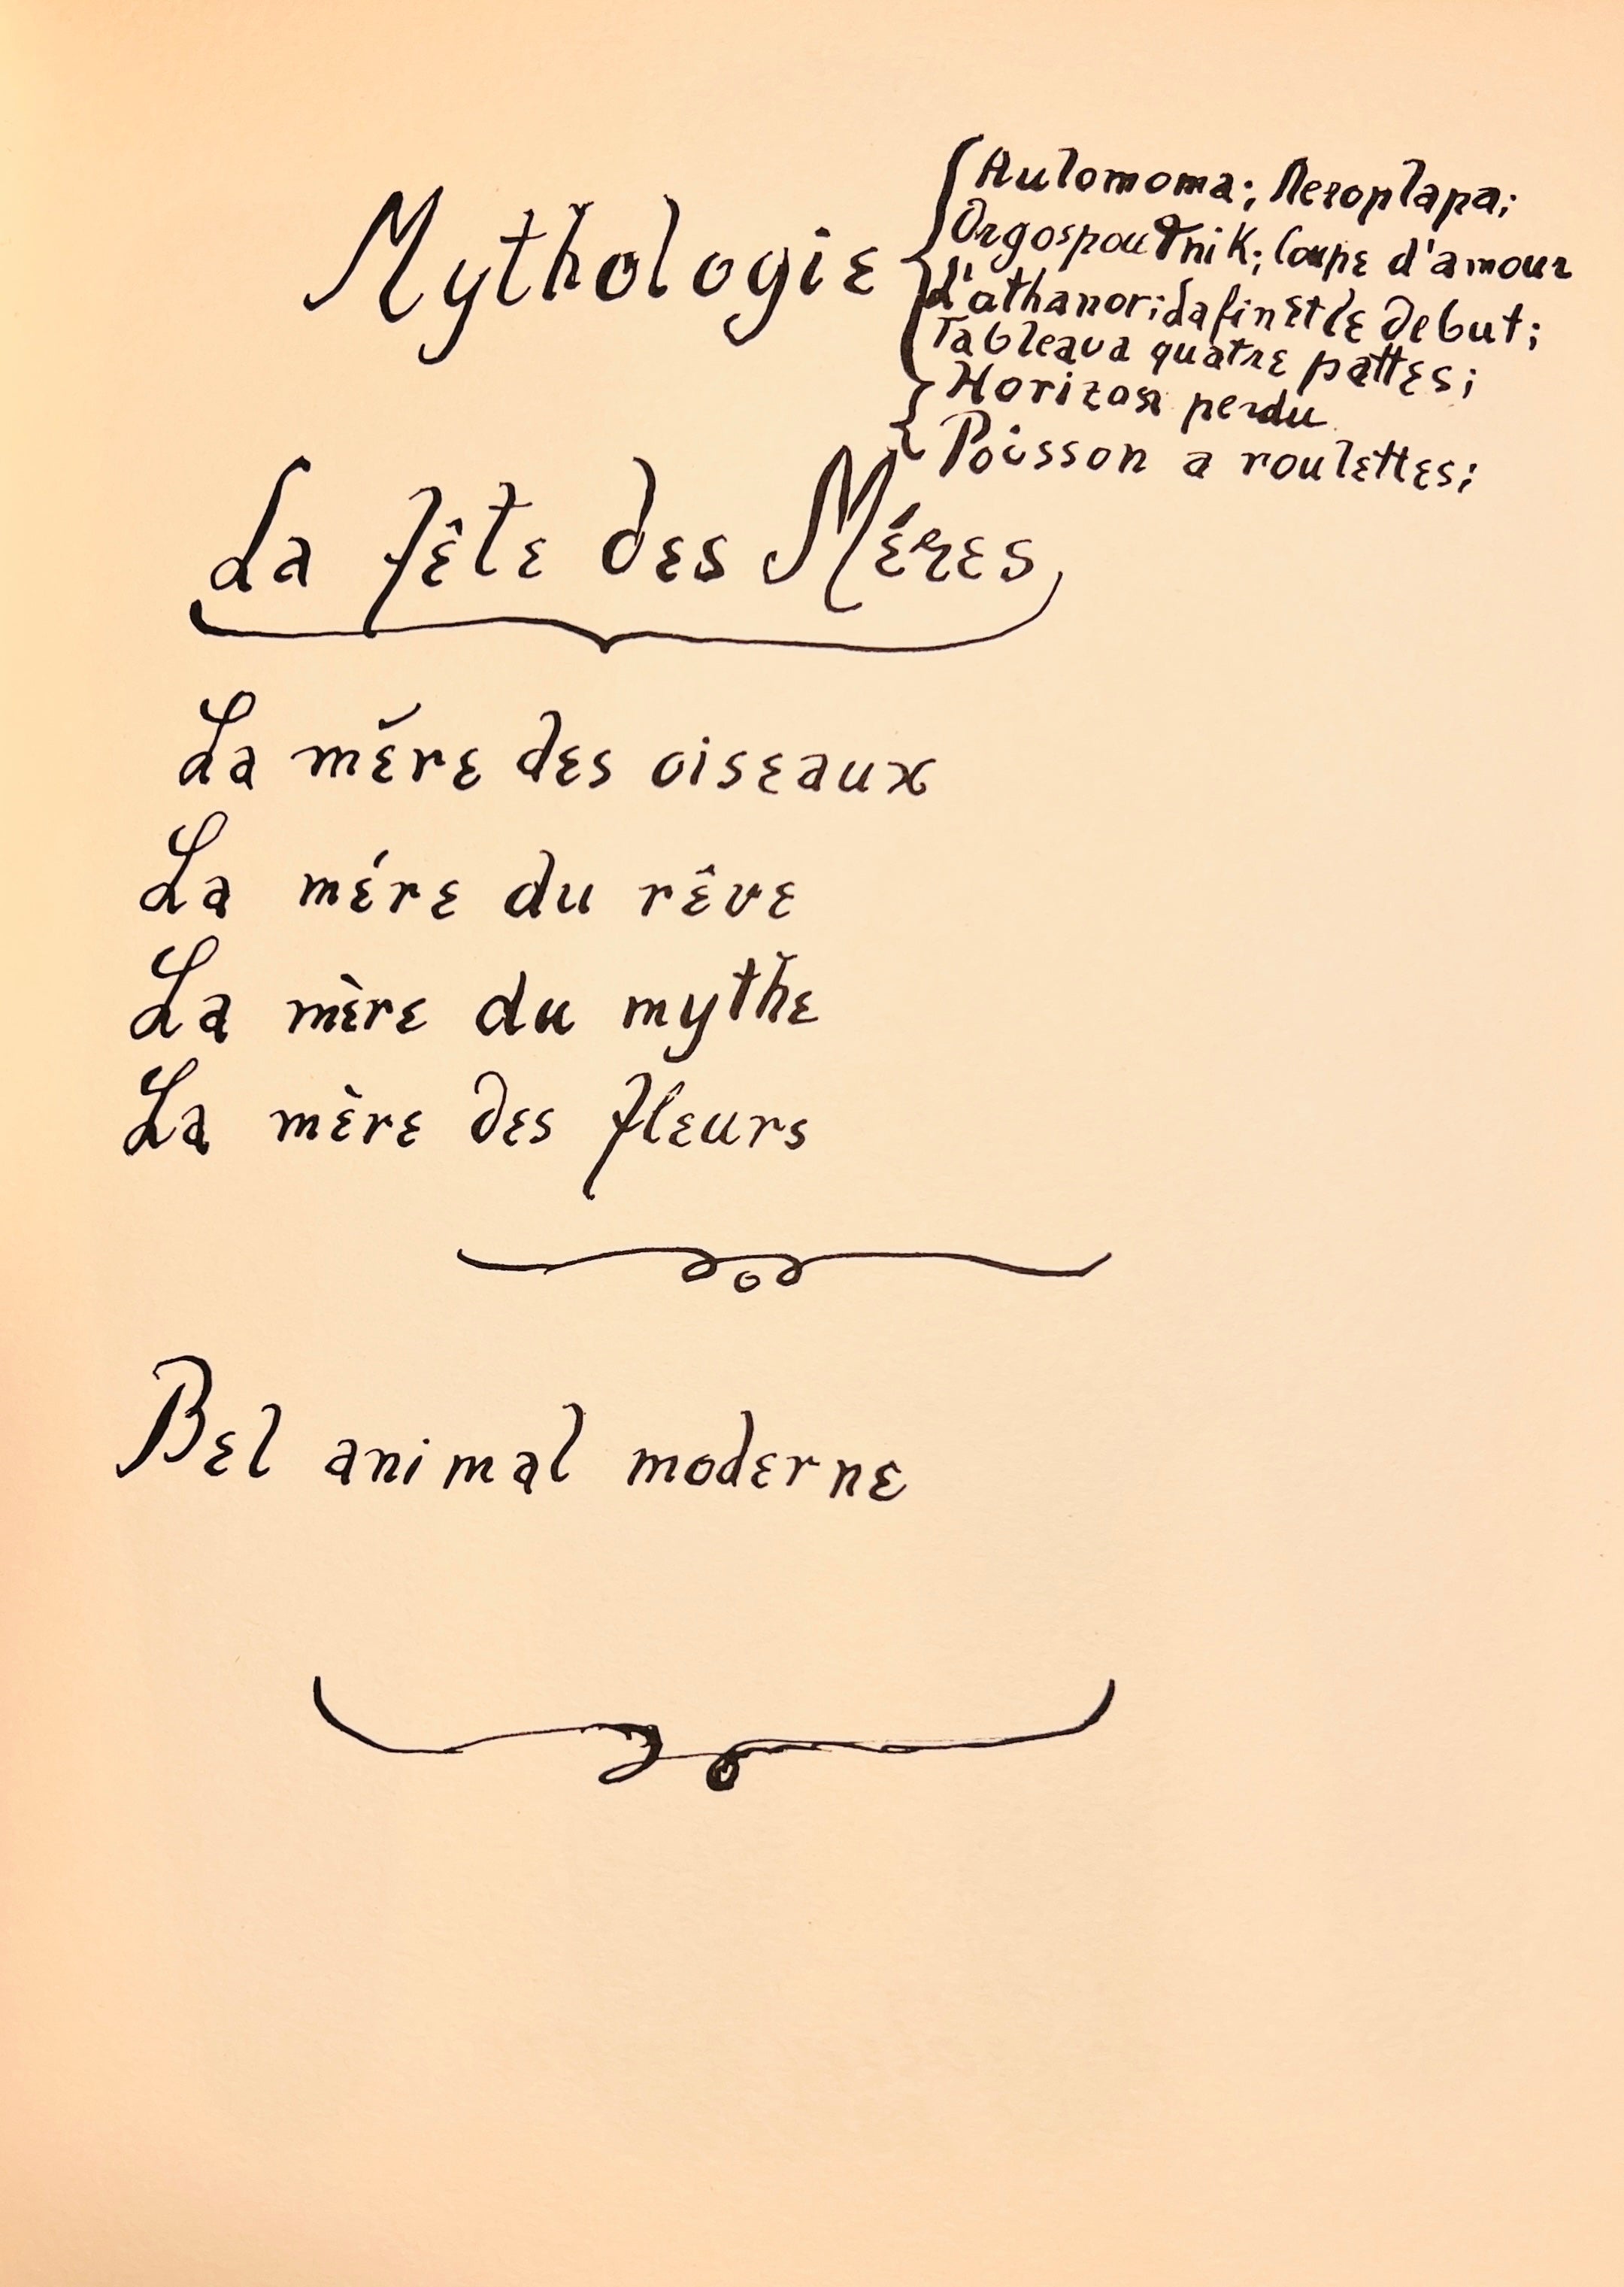 Mythologie
Automoma; Aeroplapa;
Orgospoutnik; Coupe d'amour
L'athanor; La fin et le debut;
Tableau a quatre pattes;
Horizon perdu
Poisson a roulettes;
La fête des Méres
La mére des oiseaux
La mére du rêve
La mère du mythe
La mère des fleurs
Bel animal moderne